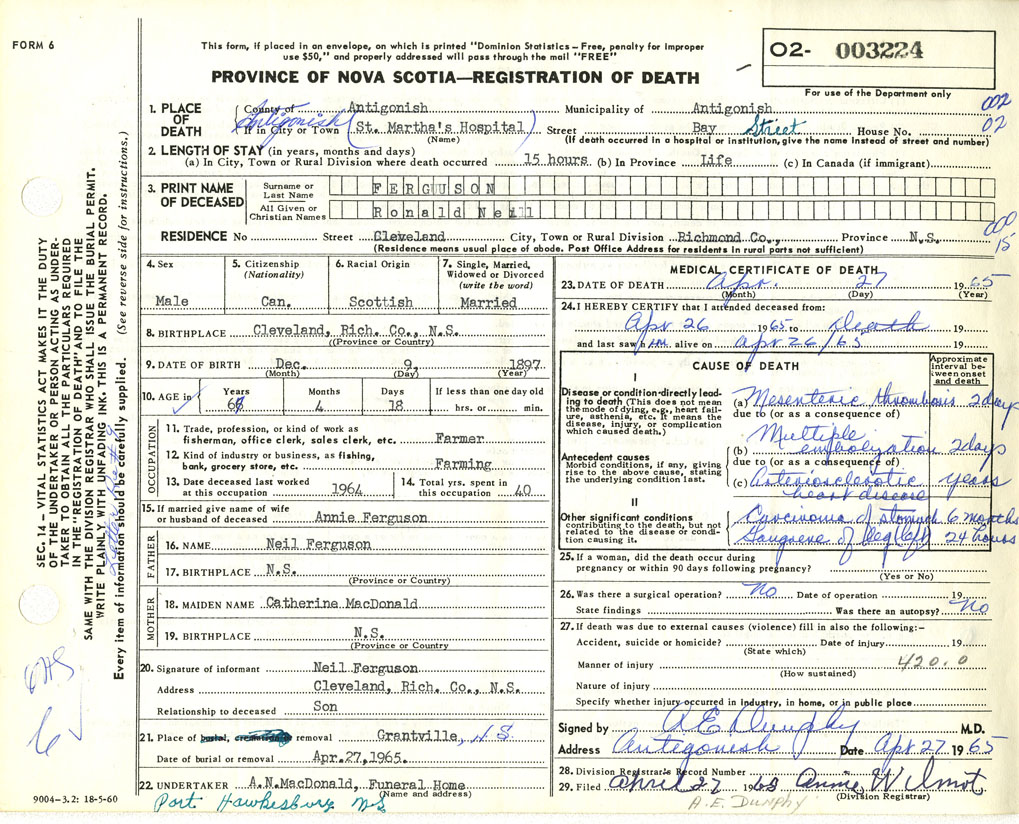 FORM 6
This form, if placed in an envelope, on which is printed "Dominion Statistics – Free, penalty for improper
use $50," and properly addressed will pass through the mail "FREE"
PROVINCE OF NOVA SCOTIA—REGISTRATION OF DEATH
O2- 003224
For use of the Department only
002
02
1. PLACE OF DEATH
County of Antigonish Municipality of Antigonish
Antigonish
If in City or Town (St. Martha's Hospital) Street Bay Street House No.
(Name) (If death occurred in a hospital or institution, give the name instead of street and number)
2. LENGTH OF STAY (in years, months and days)
(a) In City, Town or Rural Division where death occurred 15 hours (b) In Province Life (c) In Canada (if immigrant)
3. PRINT NAME OF DECEASED
Surname or Last Name FERGUSON
All Given or Christian Names Ronald Neill
000
15
RESIDENCE No Street Cleveland City, Town or Rural Division Richmond Co., Province N.S.
(Residence means usual place of abode. Post Office Address for residents in rural parts not sufficient)
4. Sex
Male
5. Citizenship
(Nationality)
Can.
6. Racial Origin
Scottish
7. Single, Married,
Widowed or Divorced
(write the word)
Married
8. BIRTHPLACE Cleveland, Rich. Co., N.S.
(Province or Country)
9. DATE OF BIRTH Dec. 9, 1897
(Month) (Day) (Year)
10. AGE in
Years Months Days If less than one day old
4 18 hrs. or min.
OCCUPATION
11. Trade, profession, or kind of work as
fisherman, office clerk, sales clerk, etc. Farmer
12. Kind of industry or business, as fishing,
bank, grocery store, etc. Farming
13. Date deceased last worked
at this occupation 1964
14. Total yrs. spent in
this occupation 40
15. If married give name of wife
or husband of deceased Annie Ferguson
FATHER
16. NAME Neil Ferguson
17. BIRTHPLACE N.S.
(Province or Country)
MOTHER
18. MAIDEN NAME Catherine MacDonald
19. BIRTHPLACE N.S.
(Province or Country)
20. Signature of informant Neil Ferguson
Address Cleveland, Rich. Co., N.S.
Relationship to deceased Son
21. Place of burial, cremation or removal Grantville, N.S.
Date of burial or removal Apr.27,1965.
22. UNDERTAKER A.N.MacDonald, Funeral Home
(Name and address)
Port Hawkesbury N.S
MEDICAL CERTIFICATE OF DEATH
23. DATE OF DEATH Apr. 27 1965
(Month) (Day) (Year)
24. I HEREBY CERTIFY that I attended deceased from:
Apr 26 1965 to Death 19
and last saw him alive on Apr 26/65 19
CAUSE OF DEATH
Approximate
interval be-
tween onset
and death
I
Disease or condition directly lead-
ing to death (This does not mean
the mode of dying, e.g., heart fail-
ure, asthenia, etc. It means the
disease, injury, or complication
which caused death.)
(a) Mesenteric thrombosis 2 days
due to (or as a consequence of)
Multiple
(b) embolyzation 2 days
due to (or as a consequence of)
(c) Arteriosclerotic years
heart disease
Antecedent causes
Morbid conditions, if any, giving
rise to the above cause, stating
the underlying condition last.
II
Other significant conditions
contributing to the death, but not
related to the disease or condi-
tion causing it.
Carcinoma of stomach 6 months
Gangrene of leg left 24 hours
25. If a woman, did the death occur during
pregnancy or within 90 days following pregnancy?
(Yes or No)
26. Was there a surgical operation? No Date of operation 19
State findings Was there an autopsy? No
27. If death was due to external causes (violence) fill in also the following:–
Accident, suicide or homicide? Date of injury 19
(State which)
Manner of injury 420.0
(How sustained)
Nature of injury
Specify whether injury occurred in industry, in home, or in public place
Signed by A E Dunphy M.D.
Address Antigonish Date Apr 27 1965
28. Division Registrar's Record Number
29. Filed April 27 Annie Wilmot
(Division Registrar)
A.E. DUNPHY
SEC. 14 – VITAL STATISTICS ACT MAKES IT THE DUTY
OF THE UNDERTAKER OR PERSON ACTING AS UNDER-
TAKER TO OBTAIN ALL THE PARTICULARS REQUIRED
IN THE "REGISTRATION OF DEATH" AND TO FILE THE
SAME WITH THE DIVISION REGISTRAR WHO SHALL ISSUE THE BURIAL PERMIT.
WRITE PLAINLY, WITH UNFADING INK. THIS IS A PERMANENT RECORD.
Every item of information should be carefully supplied. (See reverse side for instructions.)
9004-3.2: 18-5-60